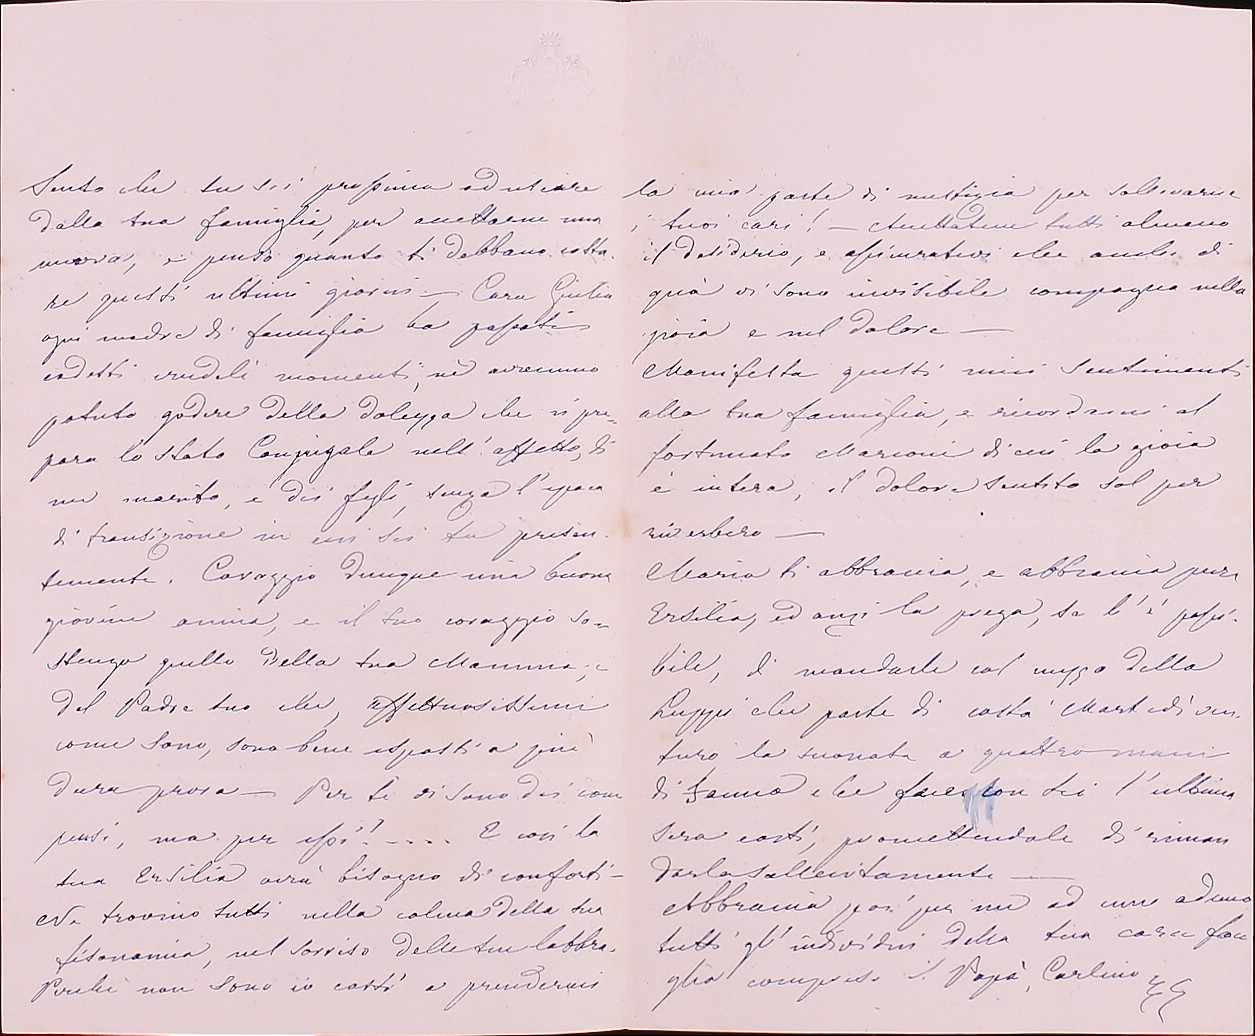 Sento che tu sei prossima ad uscire
dalla tua famiglia, per accettarne una
nuova, e penso quanto ti debbano costa-
re questi ultimi giorni — Cara Giulia
ogni madre di famiglia ha passati
codesti crudeli momenti, nè avremmo
potuto godere della dolcezza che ci pre-
para lo stato Conjugale nell'affetto, di
un marito, e dei figli, senza l'epoca
di transizione in cui sei tu presen-
temente. Coraggio dunque mia buona
giovine amica, e il tuo coraggio so-
stenga quello della tua Mamma, e
del Padre tuo che, affettuosissimi
come sono, sono bene esposti a più
dura prova — Per te vi sono dei com
pensi, ma per essi? .... E così la
tua Ersilia avrà bisogno di conforti —
Ne trovino tutti nella calma della tua
fisonomia, nel sorriso delle tue labbra.
Perchè non sono io costì a prendermi
la mia parte di mestizia per sollevarne
i tuoi cari! — Accettatene tutti almeno
il desiderio, e assicuratevi che anche di
quà vi sono invisibile compagna nella
gioia e nel dolore —
Manifesta questi miei sentimenti
alla tua famiglia, e ricordami al
fortunato Marconi di cui la gioia
è intera, il dolore sentito sol per
riverbero —
Maria ti abbraccia, e abbraccia pure
Ersilia, ed anzi la prega, se l'è possi-
bile, di mandarle col mezzo della
che parte di costà Martedì ven-
turo la suonata a quattro mani
di che faces con lei l'ultima
sera costì, promettendole di riman
darla sollecitamente —
Abbraccia poi per me ad uno ad uno
tutti gl'individui della tua cara fami
glia compreso il Papà, Carlino